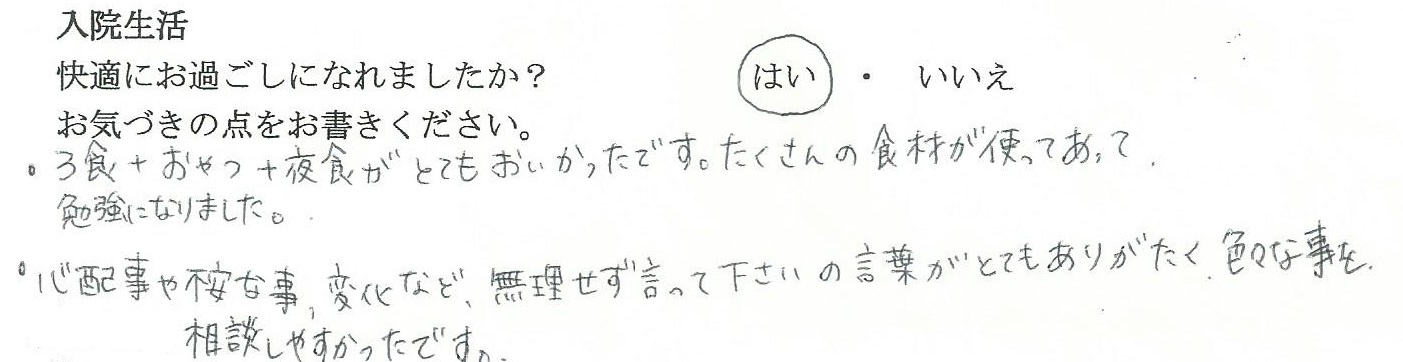 入院生活
快適にお過ごしになれましたか? はい ・ いいえ
お気づきの点をお書きください。
。3食+おやつ+夜食がとてもおいかったです。たくさんの食材が使ってあって、
勉強になりました。
。心配事や不安な事、変化など、無理せず言って下さいの言葉がとてもありがたく、色々な事を、
相談しやすかったです。